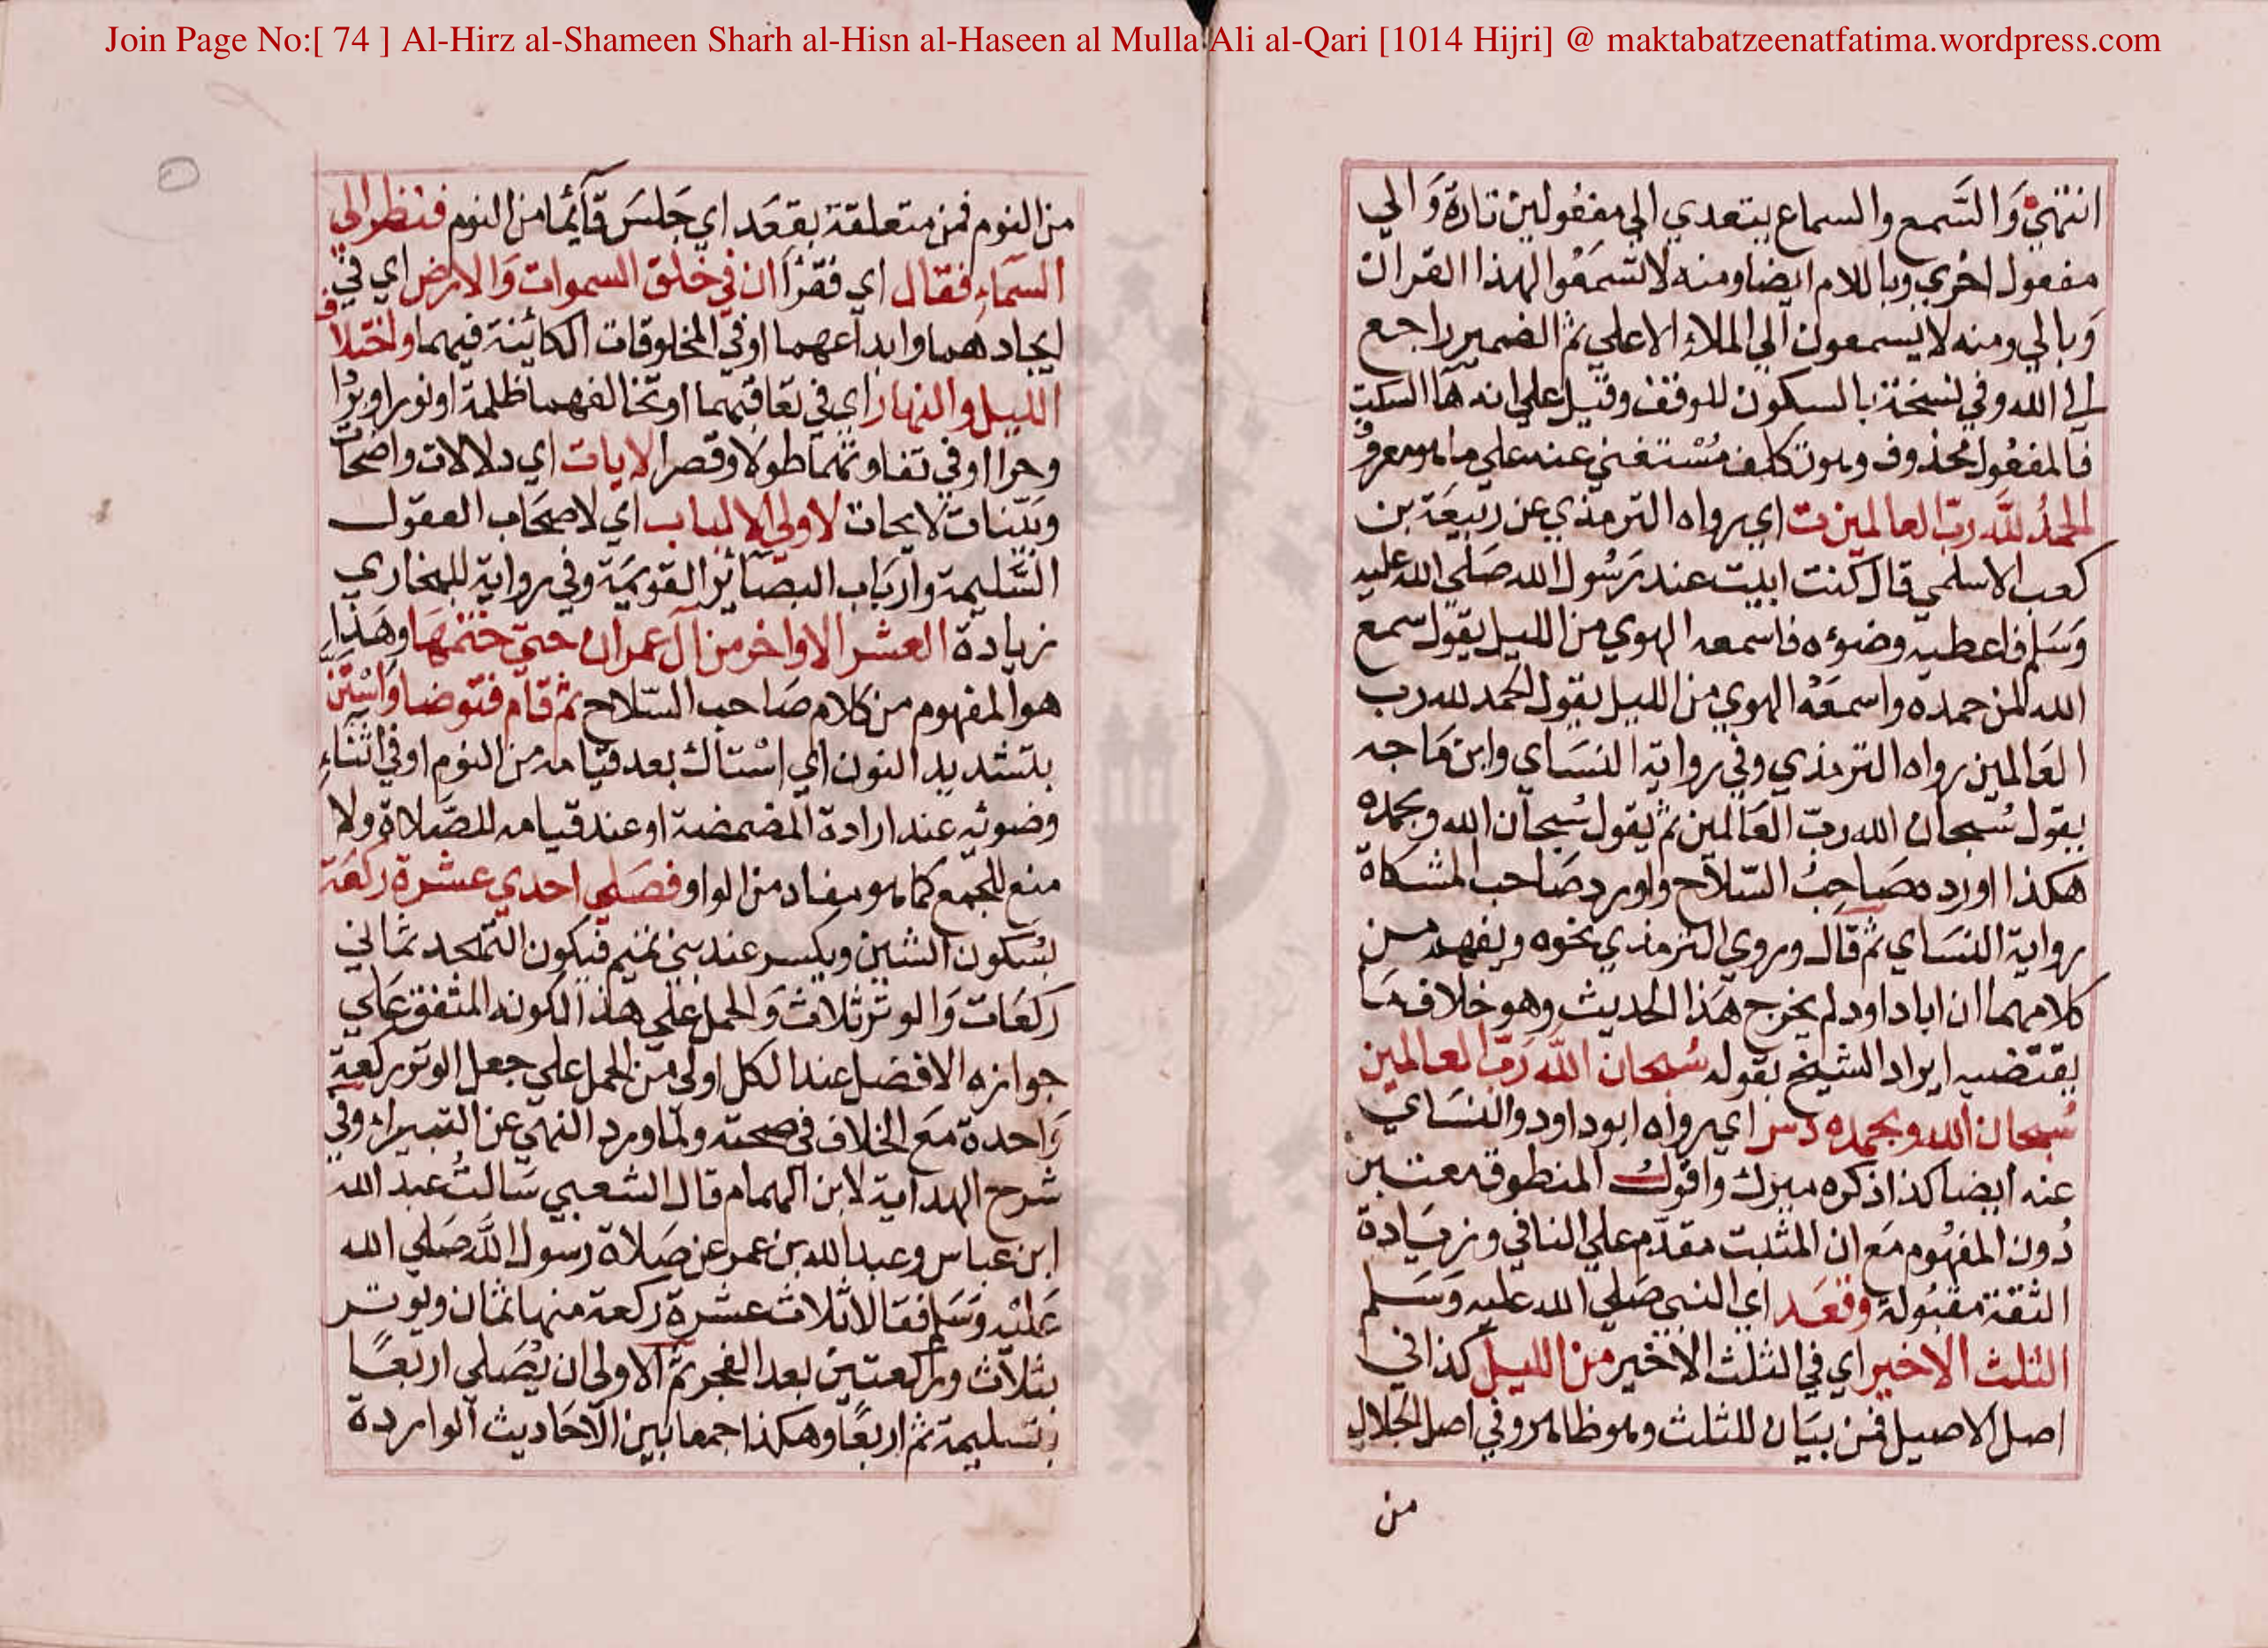 Join Page No:[ 74 ] Al-Hirz al-Shameen Sharh al-Hisn al-Haseen al Mulla Ali al-Qari [1014 Hijri] @ maktabatzeenatfatima.wordpress.com
انتهي وَالسَّمع والسماع يتعدي الي مفعُولين تارة وَالي
مفعول اخري وباللام ايضا ومنه لا تسمَعُوا لهذا القران
وَبالي ومنه لا يسمعون الي الملاء الاعلي ثم الضمير راجع
الي الله وفي نسخة بالسكون للوقف وقيل علي انه هَا السكت
فالمفعُول محذوف وهو تكلف مُسْتغني عنه علي ما هو معروف
الحمدُ للَّه ربّ العالمين ت اي رواه الترمذي عن ربيعَة بن
كعب الاسلمي قال كنت ابيت عند رَسُول الله صَلّي الله عليه
وَسَلم فاعطيه وضوءه فاسمعه الهوي من الليل يقول سمع
الله لمن حمده واسمعَهُ الهوي من الليل يقول الحمد لله رب
العَالمين رواه الترمذي وفي رواية النسَاي وابن مَاجه
يقول سُبحان الله ربّ العَالمين ثم يقول سُبحان الله وبحمده
هكذا اورده صَاحِبُ السّلاح واورد صَاحب المشكاة
رواية النسَاي ثم قَال وروي الترمذي نحوه ويفهم من
كلامهما ان اباداود لم يخرج هَذا الحديث وهو خلاف مَا
يقتضيه ايراد الشيخ بقوله سُبحان اللّه رَبّ العالمين
سُبحان الله وبحمده دس اي رواه ابوداود والنسَاي
عنه ايضا كذا ذكره ميرك واقول المنطوق معتبر
دُون المفهُوم مَع ان المثبت مقدّم علي النافي وزيَادة
الثقة مقبُولة وقعَد اي النبي صَلي الله عليه وَسَلم
الثلث الاخير اي في الثلث الاخير من الليل كذا في
اصل الاصيل فمن بيَان للثلث وهو ظاهر وفي اصل الجلال
من
من النوم فمن متعلقة بقعَد اي جَلسَ قآئما من النوم فنظر الي
السَّماءِ فقال اي فقرأ ان في خلق السموات وَالارض اي في
ايجادهما وابداعهما او في المخلوقات الكائنة فيهما واختلاف
الليل والنهار اي في تعَاقبهما او تخالفهما ظلمة ونورا وبرْدا
وحرا او في تفاوتهما طولا وقصرا لايات اي دلالات واضحات
وبيّنات لايحات لاولي الالباب اي لاصحَاب العقول
السَّليمة وارْبَاب البصَائر القويمَة وفي رواية للبخاري
زيادة العشر الاواخر من آل عمران حتي ختمهَا وهَذا
هو المفهوم من كلام صَاحب السّلاح ثم قَام فتوضا وَاسْتَنّ
بتشديد النون اي اسْتاك بعد قيامه من النوم او في اثنَاءِ
وضوئه عند ارادة المضمضة او عند قيامه للصَّلاة ولا
منع للجمع كما هو مفاد من الواو فصَلي احدي عشرة ركعَة
بسُكون الشين ويكسر عند بني تميم فيكون التهجد ثماني
ركعَات وَالوتر ثلاث وَالحمل علي هذا لكونه المتفق عَلي
جوازه الافضل عند الكل اولي من الحمل علي جعل الوتر ركعة
وَاحدة مَع الخلاف في صحته ولما ورد النهي عن البتيراء وفي
شرح الهداية لابن الهمام قال الشعبي سَالتُ عبد الله
ابن عباس وعبد الله بن عمر عن صَلاة رسول اللَّه صَلي الله
عَليْه وَسَلم فقالا ثلاث عشرة ركعة منها ثمان ويوتر
بثلاث وركعتين بعد الفجر ثم الاولي ان يُصَلي اربعًا
بتسليمة ثم اربعًا وهكذا جمعا بين الاحَاديث الواردة